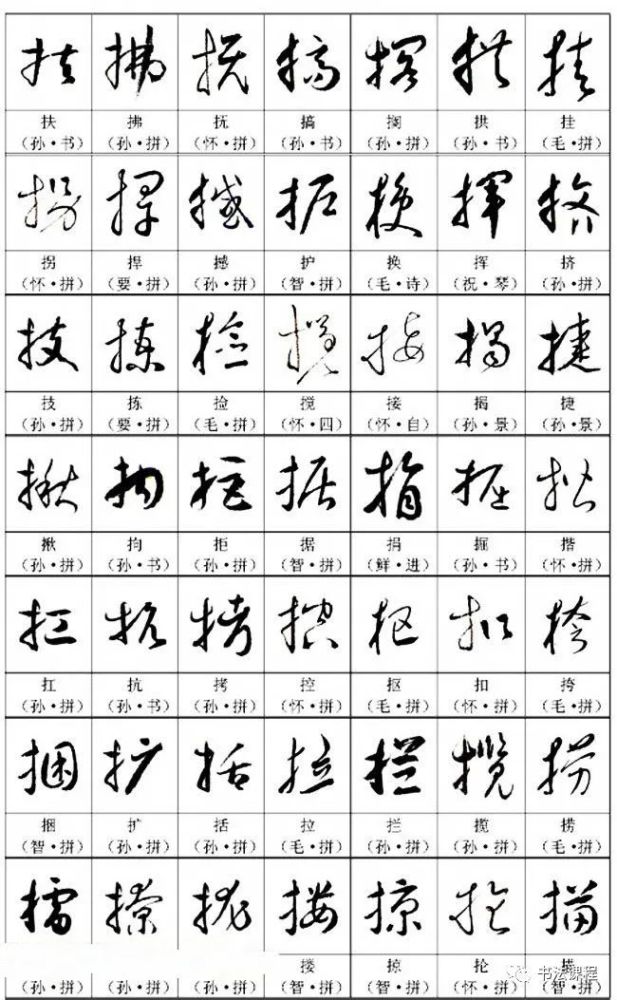 扶 拂 抚 搞 搁 拱 挂
(孙·书) (孙·拼) (怀·拼) (孙·书) (孙·拼) (孙·书) (毛·拼)
拐 捍 撼 护 换 挥 挤
(怀·拼) (要·拼) (孙·拼) (智·拼) (毛·诗) (祝·琴) (孙·拼)
技 拣 捡 搅 接 揭 捷
(孙·拼) (要·拼) (毛·拼) (怀·四) (怀·自) (孙·景) (孙·景)
揪 拘 拒 据 捐 掘 揩
(孙·拼) (孙·书) (孙·拼) (智·拼) (鲜·进) (孙·书) (怀·拼)
扛 抗 拷 控 抠 扣 挎
(孙·拼) (孙·书) (孙·拼) (怀·拼) (毛·拼) (怀·拼) (毛·拼)
捆 扩 括 拉 拦 揽 捞
(智·拼) (孙·拼) (孙·拼) (毛·拼) (孙·拼) (孙·拼) (毛·拼)
搂 掠 抡 描
(孙·拼) (孙·拼) (孙·拼) (智·拼) (智·拼) (怀·拼) (智·拼)
书法课程